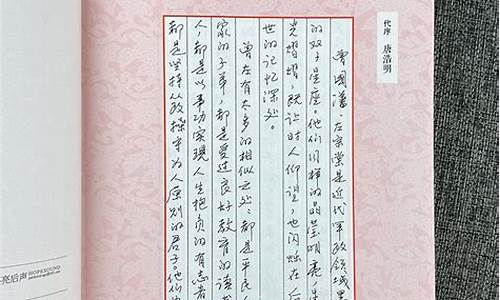 代序 唐浩明
曾國藩、左宗棠是近代军政领域里
的双子星座。他们同样的晶莹明亮、
光熠熠，既让时人仰望，也闪烁在后
世的记忆深处。
曾左有太多的相似之处：都是平民
家的子弟，都是受过良好教育的读书
人，都是以事功实现人生抱负的有志者
都是坚持从政操守为人原则的君子。他们
亮后声 HOPESOUND